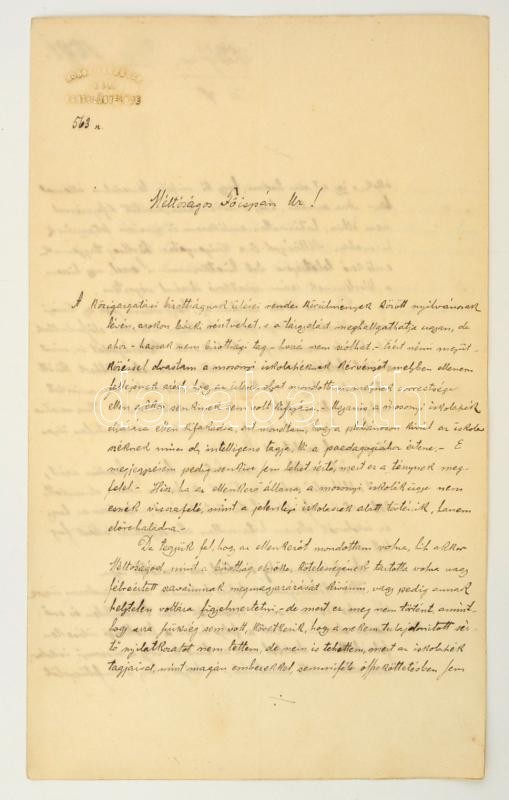 563 n.
Méltóságos Főispán Úr!
A közigazgatási bizottságnak ülései rendes körülmények között nyilvánosak
lévén, azokon bárki részt vehet, s a tárgyalást meghallgathatja ugyan, de
ahoz - hacsak nem bizottsági tag - hozzá nem szólhat. - Azért némi megüt-
közéssel olvastam a mosonyi iskolaszéknek kérvényét, melyben ellenem
feljelentést
ellen senkinek sem volt kifogása. - Ugyanis a mosonyi iskolaszék
ellen kifakadva, azt mondtam, hogy a plébánoson kívül az iskola-
széknek nincs oly intelligens tagja, ki a paedagogiához értene. - E
megjegyzésem pedig senkire sem lehet sértő, mert ez a ténynek meg-
felel. - Hisz, ha az ellenkező állana, a mosonyi iskola ügye nem
esnék visszafelé, mint a jelenlegi iskolaszék alatt történik, hanem
előre haladna. -
De tegyük fel, hogy az ellenkezőt mondottam volna, úgy akkor
Méltóságod, mint a bizottság elnöke, kötelességének tartotta volna vagy
félreértett szavaimnak megmagyarázását kívánni, vagy pedig annak
helytelen voltára figyelmeztetni, - de mert ez meg nem történt, amint
hogy arra szükség sem volt, következik, hogy a nekem tulajdonított sér-
tő nyilatkozatot nem tettem, de nem is tehettem, mert az iskolaszék
tagjaival, mint magán emberekkel, semmiféle összeköttetésben sem
darabanth